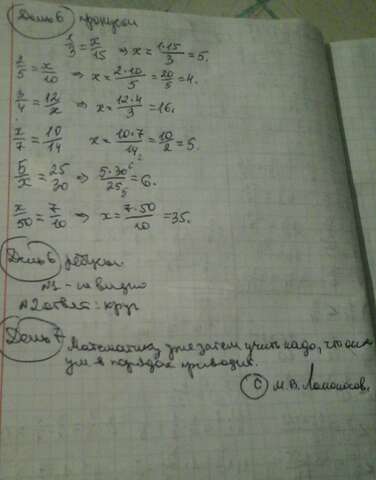 День 6 пропуски
1/3 = x/15 ⇒ x = 1·15/3 = 5.
2/5 = x/10 ⇒ x = 2·10/5 = 20/5 = 4.
3/4 = 12/x ⇒ x = 12·4/3 = 16.
x/7 = 10/14 x = 10·7/14 2 = 10/2 = 5.
5/x = 25/30 ⇒ 5·30 6/25 5 = 6.
x/50 = 7/10 ⇒ x = 7·50/10 = 35.
День 6 ребусы
№1 - не видно
№2 ответ: круг
День 7 Математику уже затем учить надо, что она
ум в порядок приводит.
© М.В. Ломоносов.